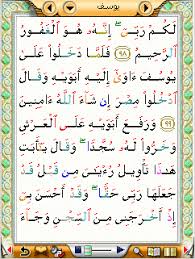 يوسف
لَكُمْ رَبِّىٓ ۖ إِنَّهُۥ هُوَ ٱلْغَفُورُ
ٱلرَّحِيمُ ٩٨ فَلَمَّا دَخَلُوا۟ عَلَىٰ
يُوسُفَ ءَاوَىٰٓ إِلَيْهِ أَبَوَيْهِ وَقَالَ
ٱدْخُلُوا۟ مِصْرَ إِن شَآءَ ٱللَّهُ ءَامِنِينَ
٩٩ وَرَفَعَ أَبَوَيْهِ عَلَى ٱلْعَرْشِ
وَخَرُّوا۟ لَهُۥ سُجَّدًا ۖ وَقَالَ يَٰٓأَبَتِ
هَٰذَا تَأْوِيلُ رُءْيَٰىَ مِن قَبْلُ قَدْ
جَعَلَهَا رَبِّى حَقًّا ۖ وَقَدْ أَحْسَنَ بِىٓ
إِذْ أَخْرَجَنِى مِنَ ٱلسِّجْنِ وَجَآءَ